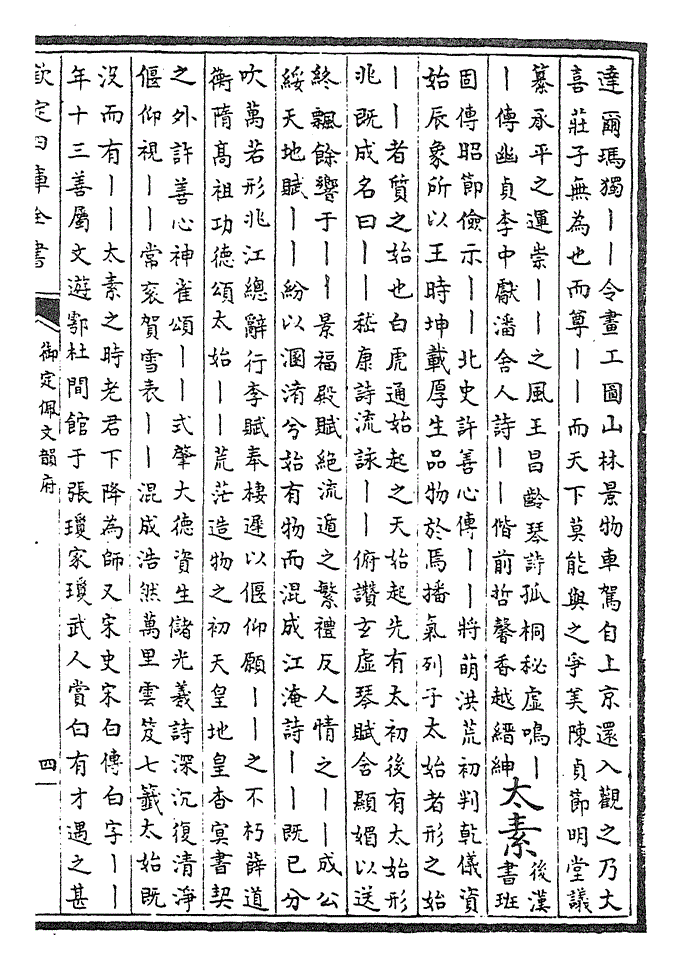 達爾瑪獨丨丨令畫工圖山林景物車駕自上京還入觀之乃大
喜莊子無為也而尊丨丨而天下莫能與之爭美陳貞節明堂議
纂承平之運崇丨丨之風王昌齡琴詩孤桐秘虛鳴丨
丨傳幽貞李中獻潘舍人詩丨丨偕前哲馨香越縉紳
太素
後漢
書班
固傳昭節儉示丨丨北史許善心傳丨丨將萌洪荒初判乾儀資
始辰象所以王時坤載厚生品物於焉播氣列子太始者形之始
丨丨者質之始也白虎通始起之天始起先有太初後有太始形
兆既成名曰丨丨嵇康詩流詠丨丨俯讚玄虛琴賦含顯媚以送
終飄餘響于丨丨景福殿賦絕流遁之繁禮反人情之丨丨成公
綏天地賦丨丨紛以溷淆兮始有物而混成江淹詩丨丨既已分
吹萬若形兆江總辭行李賦奉棲遲以偃仰願丨丨之不朽薛道
衡隋高祖功德頌太始丨丨荒茫造物之初天皇地皇杳冥書契
之外許善心神雀頌丨丨式肇大德資生儲光羲詩深沉復清淨
偃仰視丨丨常袞賀雪表丨丨混成浩然萬里雲笈七籤太始既
沒而有丨丨太素之時老君下降為師又宋史宋白傳白字丨丨
年十三善屬文遊鄠杜間館于張瓊家瓊武人賞白有才遇之甚
欽定四庫全書
御定佩文韻府
四